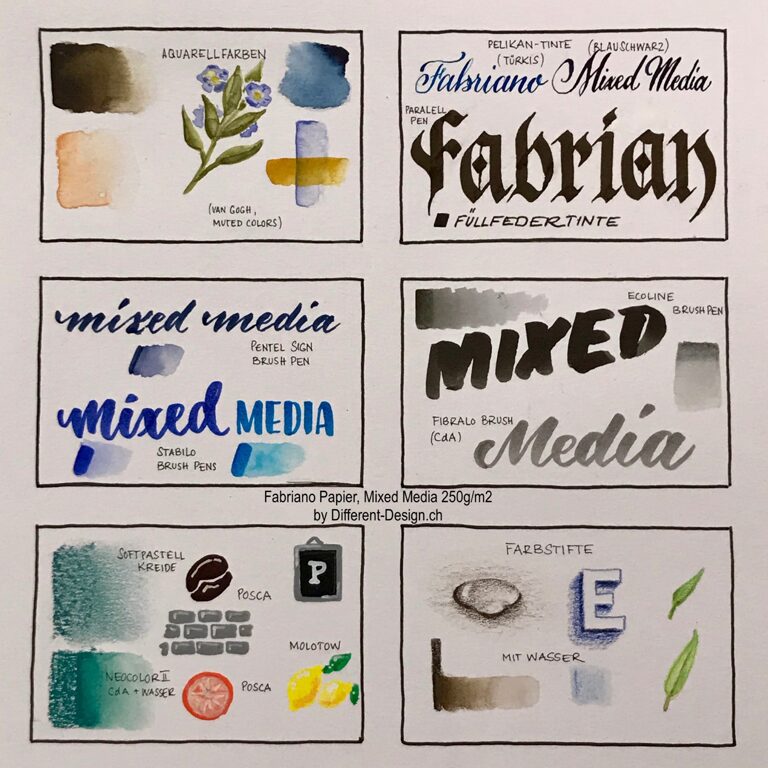 AQUARELLFARBEN
(VAN GOGH,
MUTED COLORS)
PELIKAN-TINTE (BLAUSCHWARZ)
(TÜRKIS)
Fabriano Mixed Media
PARALELL
PEN
Fabrian
FÜLLFEDERTINTE
mixed media
PENTEL SIGN
BRUSH PEN
mixed MEDIA
STABILO
BRUSH PENS
ECOLINE
BRUSHPEN
MIXED
FIBRALO BRUSH
(CdA)
Media
Fabriano Papier, Mixed Media 250g/m2
by Different-Design.ch
SOFTPASTELL
KREIDE
POSCA
P
MOLOTOW
NEOCOLOR II
CdA + WASSER
POSCA
FARBSTIFTE
E
MIT WASSER